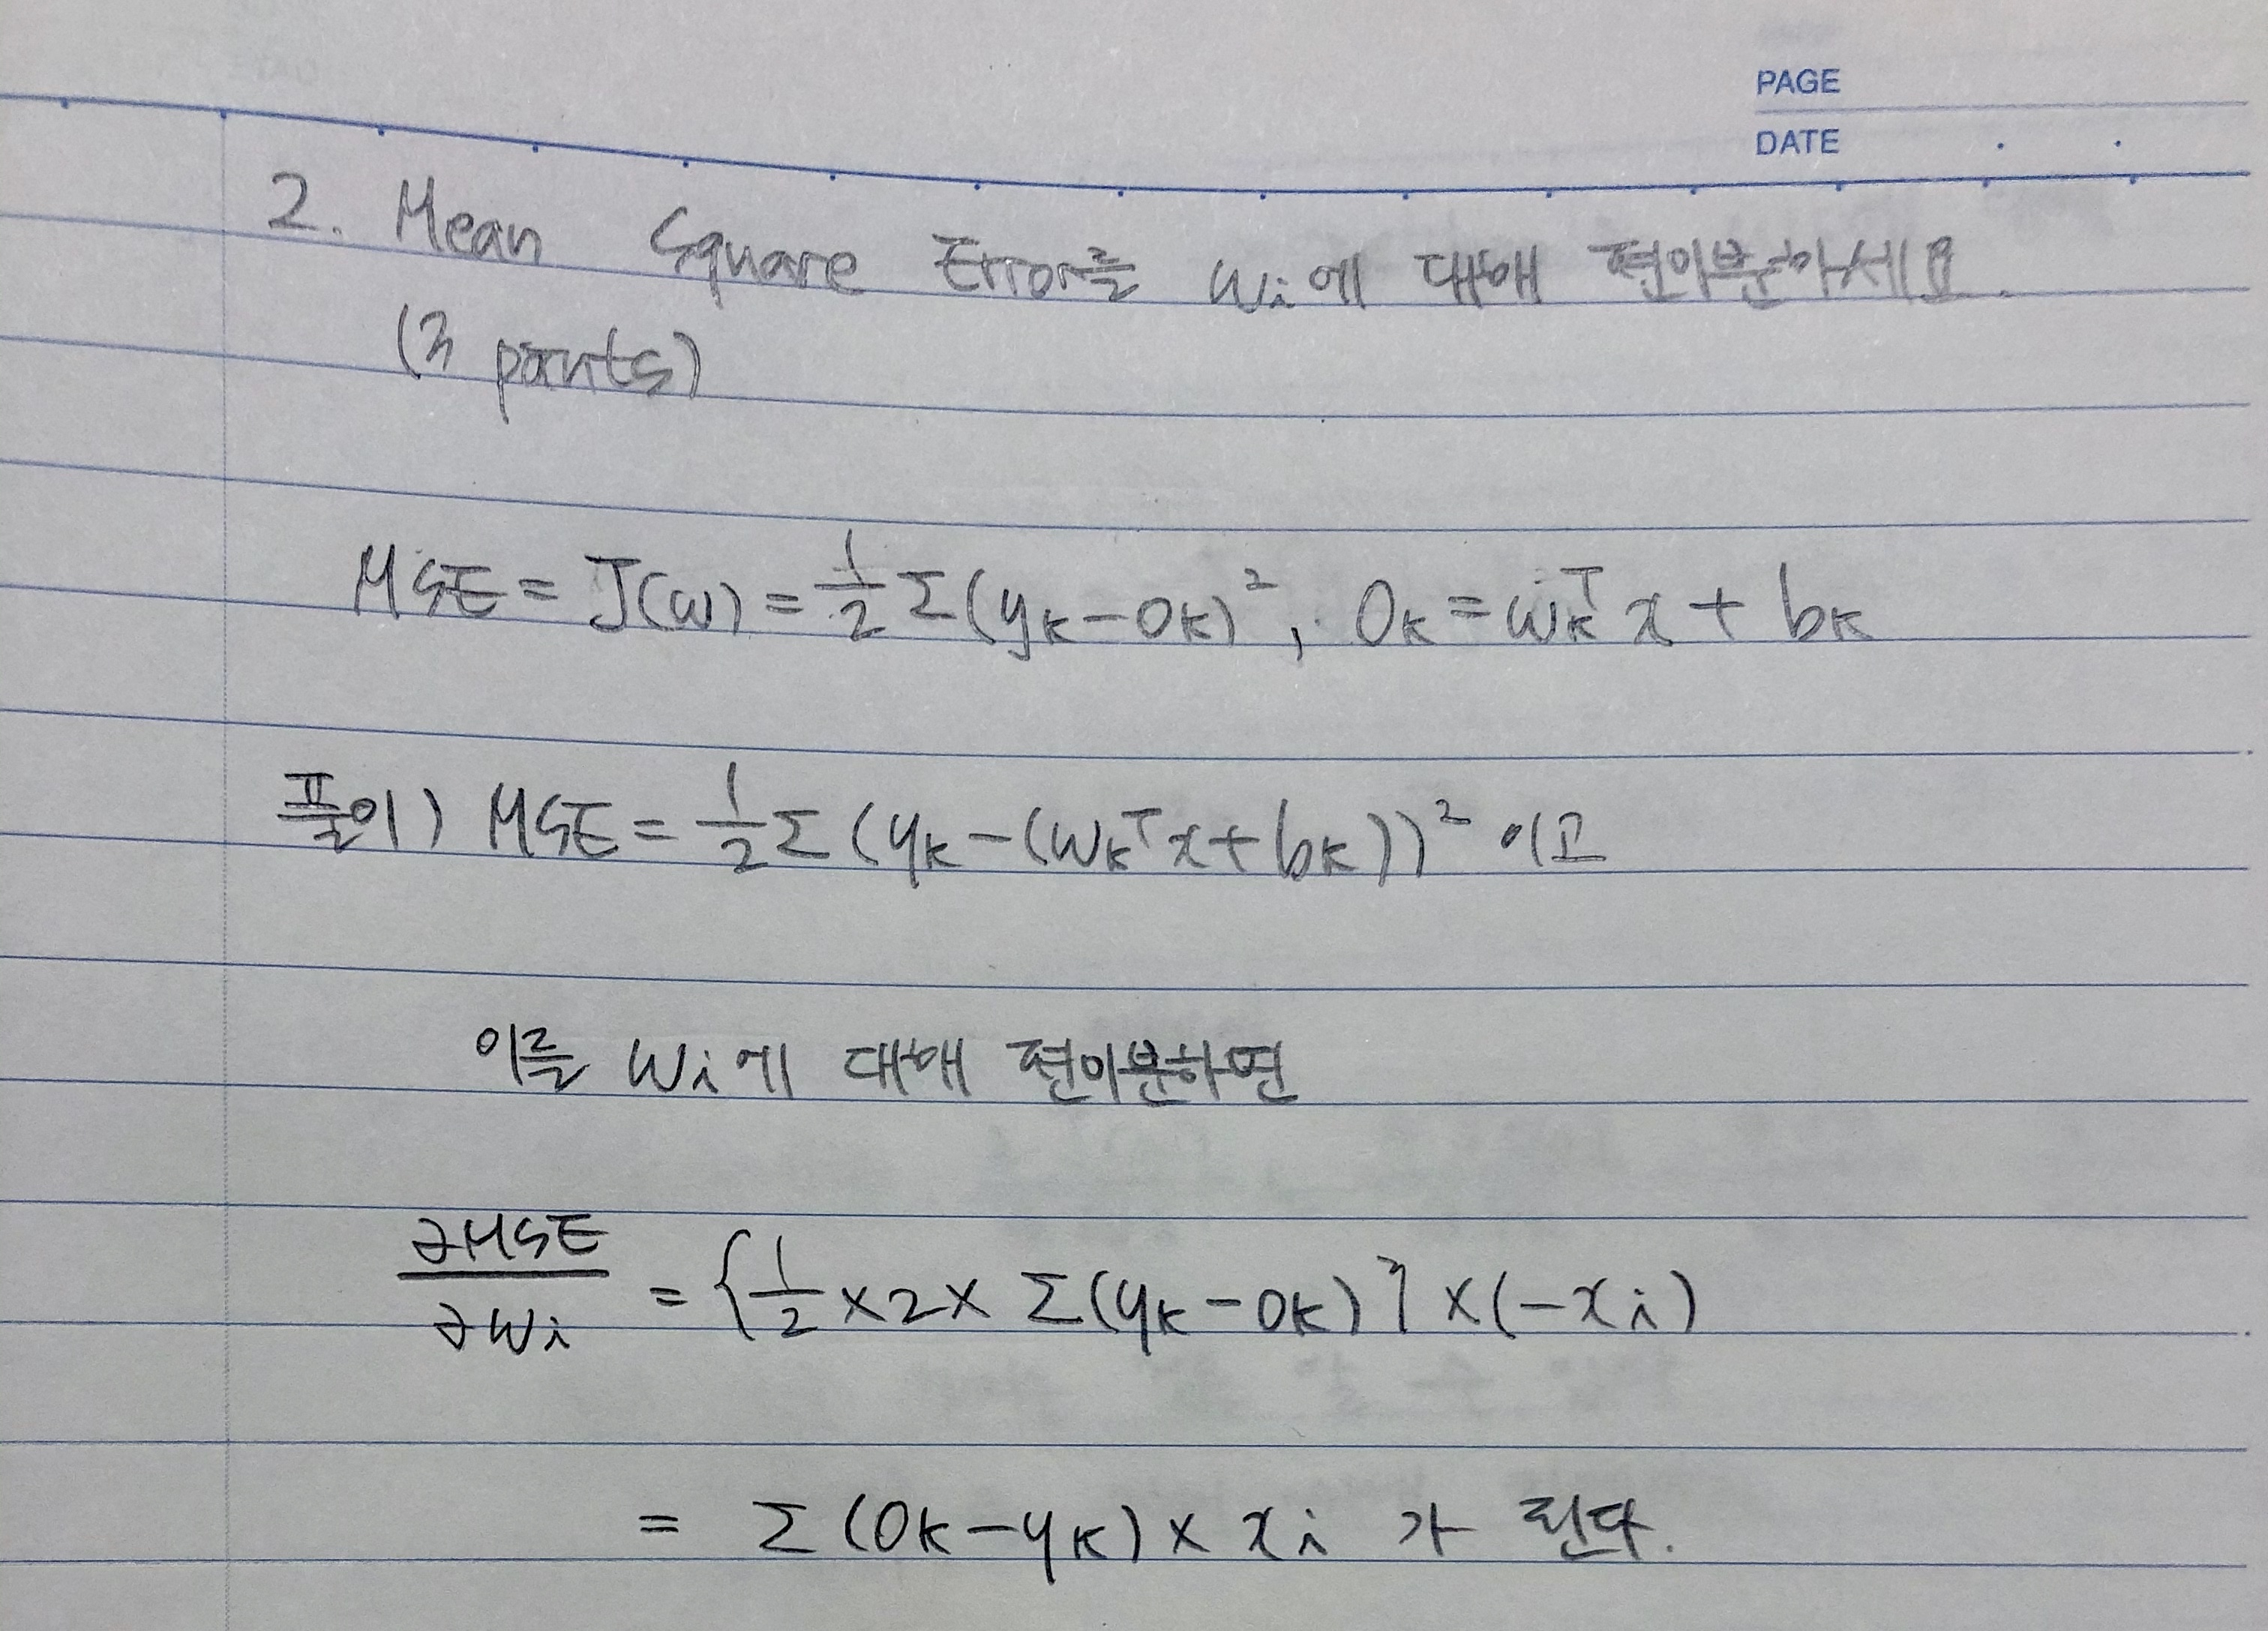 PAGE
DATE
2. Mean Square Error를 wi에 대해 편미분하세요.
(3 points)
MSE = J(w) = 1/2 Σ(yk-ok)², Ok = wkᵀx + bk
풀이) MSE = 1/2 Σ (yk-(wkᵀx+bk))² 이고
이를 wi에 대해 편미분하면
∂MSE/∂wi = {1/2 ×2× Σ(yk-ok)} ×(-xi)
= Σ (Ok-yk) × xi 가 된다.